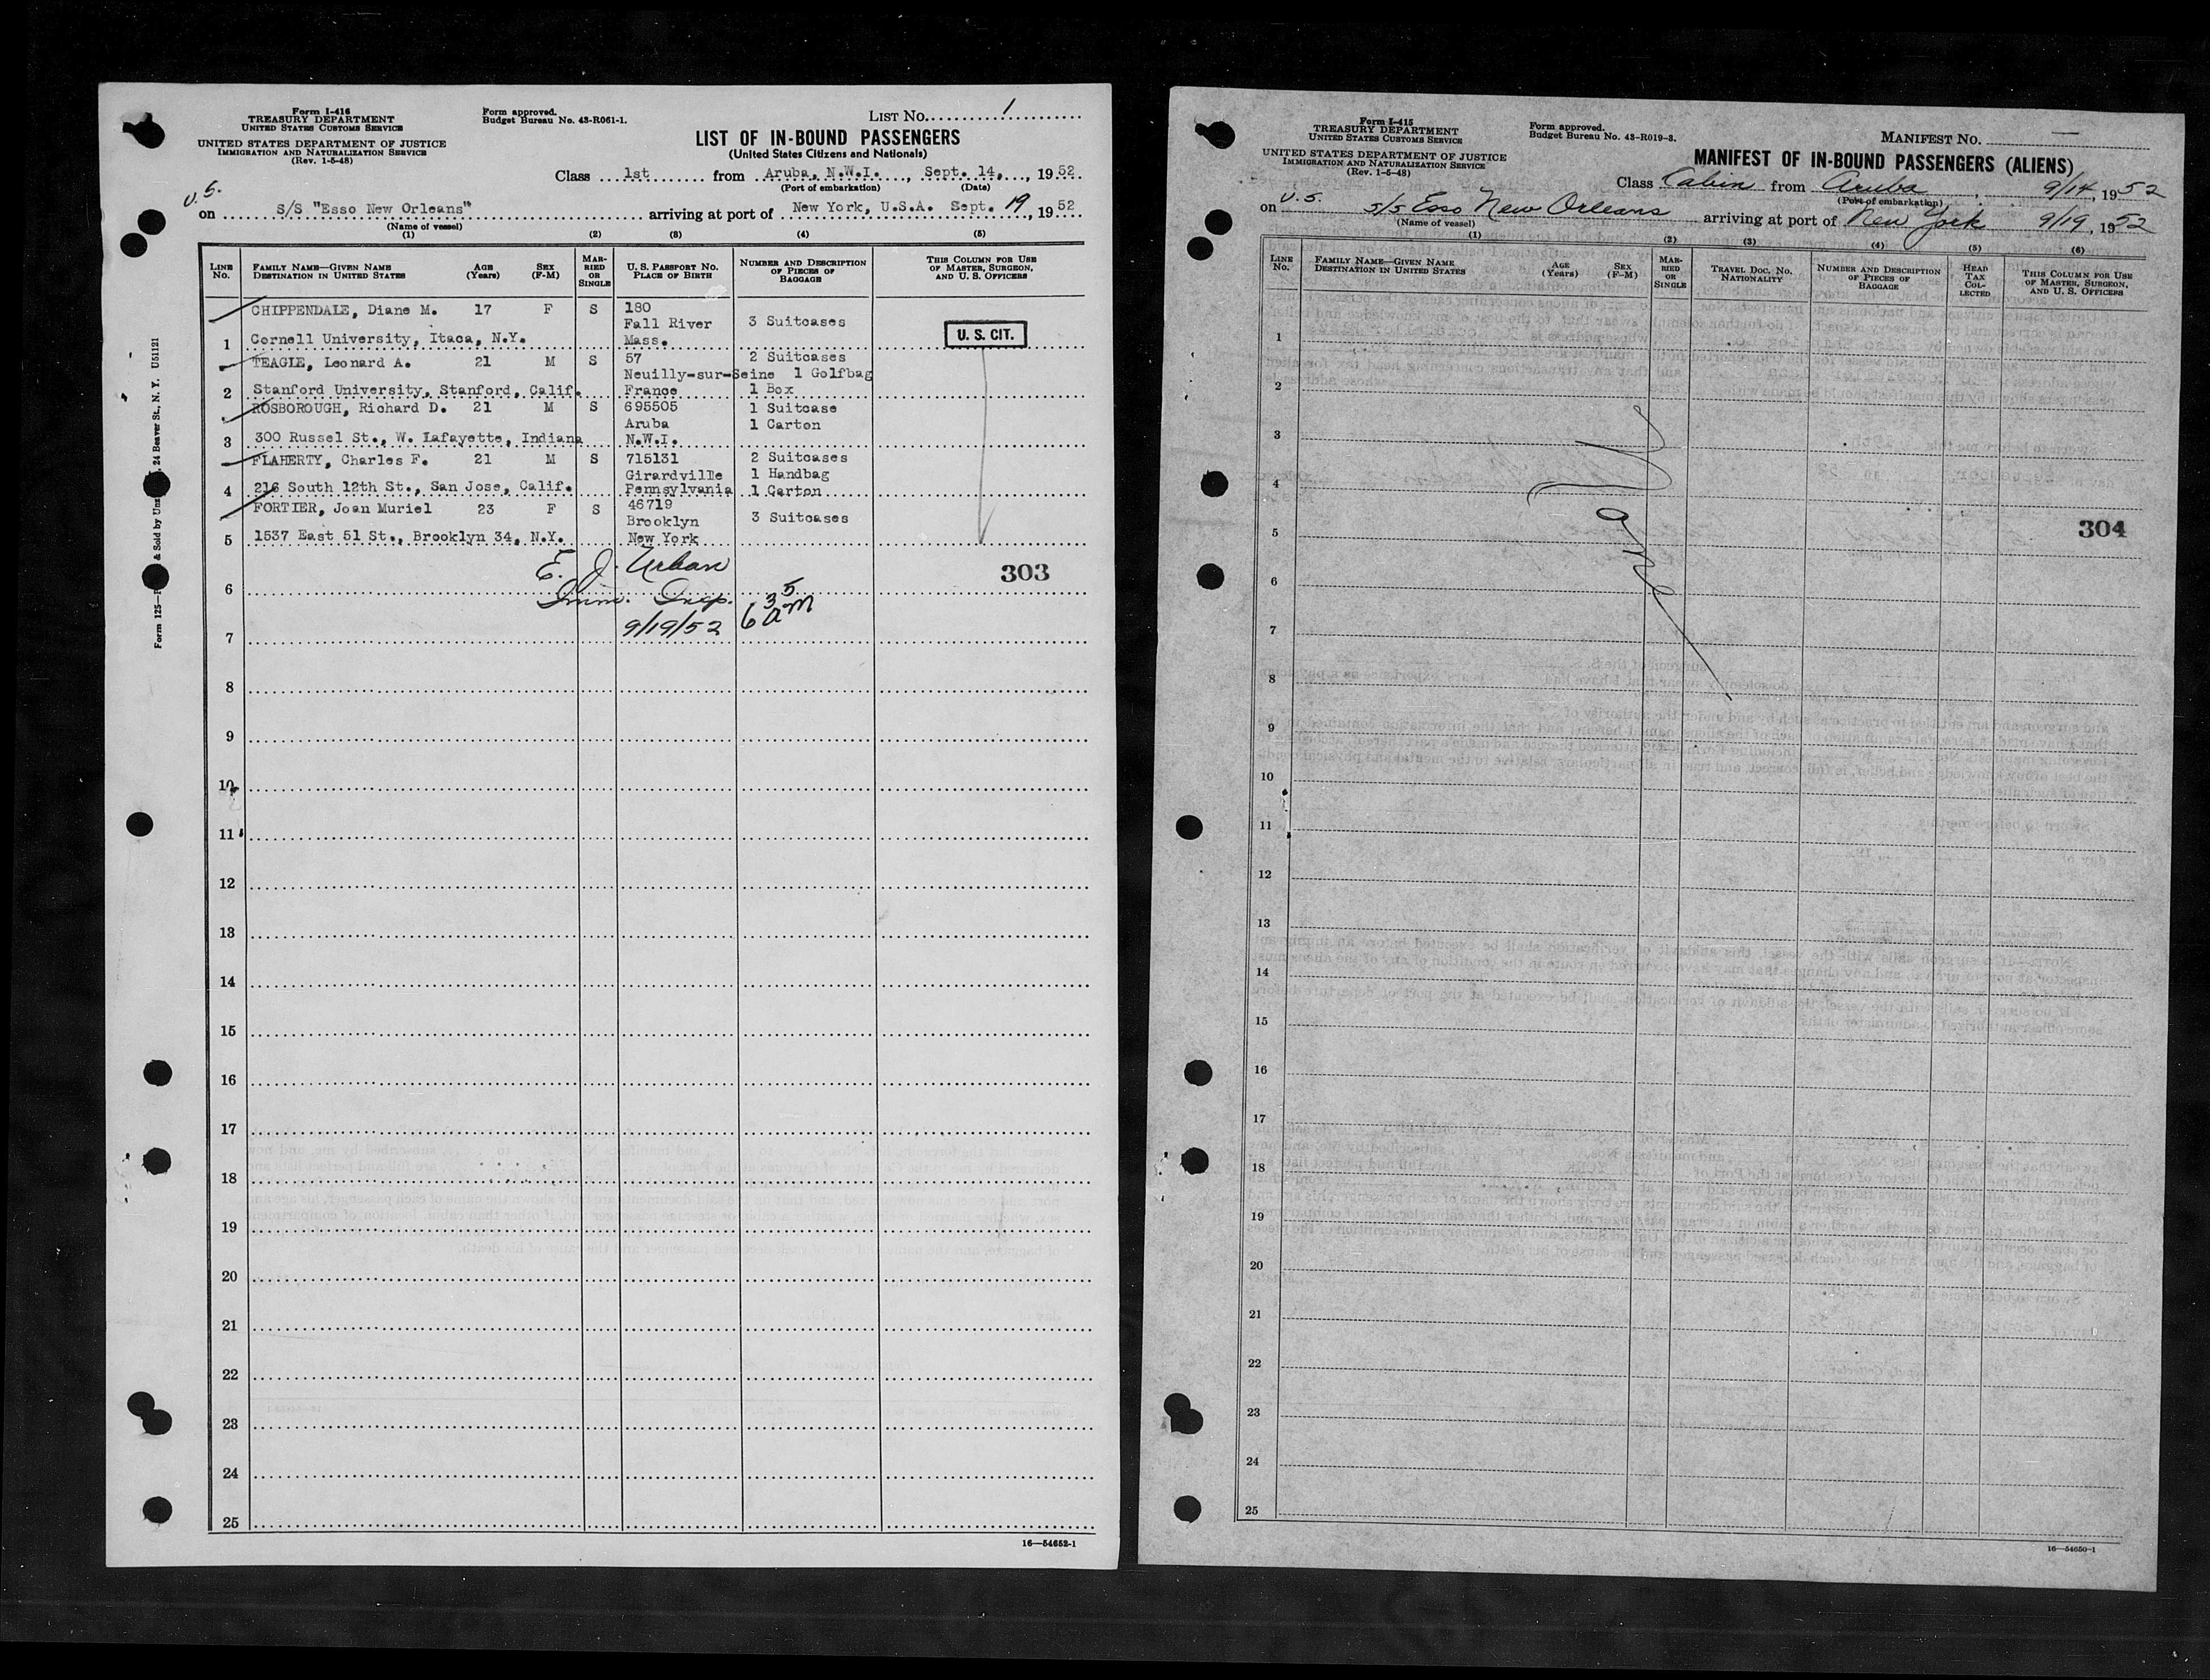 Form I-416
TREASURY DEPARTMENT
UNITED STATES CUSTOMS SERVICE
UNITED STATES DEPARTMENT OF JUSTICE
IMMIGRATION AND NATURALIZATION SERVICE
(Rev. 1-5-48)
Form approved.
Budget Bureau No. 43-R061-1.
LIST No. 1
LIST OF IN-BOUND PASSENGERS
(United States Citizens and Nationals)
Class 1st from Aruba, N.W.I., Sept. 14, 1952
(Port of embarkation) (Date)
U.S.
on S/S "Esso New Orleans" arriving at port of New York, U.S.A. Sept. 19, 1952
(Name of vessel)
(1) (2) (3) (4) (5)
LINE No.
FAMILY NAME—GIVEN NAME
DESTINATION IN UNITED STATES
AGE (Years)
SEX (F-M)
MARRIED OR SINGLE
U. S. PASSPORT No.
PLACE OF BIRTH
NUMBER AND DESCRIPTION OF PIECES OF BAGGAGE
THIS COLUMN FOR USE OF MASTER, SURGEON, AND U. S. OFFICERS
CHIPPENDALE, Diane M. 17 F S 180
Fall River 3 Suitcases
1 Cornell University, Itaca, N.Y. Mass.
U. S. CIT.
TEAGLE, Leonard A. 21 M S 57 2 Suitcases
Neuilly-sur-Seine 1 Golfbag
2 Stanford University, Stanford, Calif. France 1 Box
ROSBOROUGH, Richard D. 21 M S 695505 1 Suitcase
Aruba 1 Carton
3 300 Russel St., W. Lafayette, Indiana N.W.I.
FLAHERTY, Charles F. 21 M S 715131 2 Suitcases
Girardville 1 Handbag
4 216 South 12th St., San Jose, Calif. Pennsylvania 1 Carton
FORTIER, Joan Muriel 23 F S 46719
Brooklyn 3 Suitcases
5 1537 East 51 St., Brooklyn 34, N.Y. New York
E. J. Urban
303
6 Imm. Insp. 6 35 am
9/19/52
7
8
9
10
11
12
13
14
15
16
17
18
19
20
21
22
23
24
25
16—54652-1
& Sold by Unz 24 Beaver St., N. Y. U51121
Form 125—
Form I-415
TREASURY DEPARTMENT
UNITED STATES CUSTOMS SERVICE
UNITED STATES DEPARTMENT OF JUSTICE
IMMIGRATION AND NATURALIZATION SERVICE
(Rev. 1-5-48)
Form approved.
Budget Bureau No. 43-R019-3.
MANIFEST No. —
MANIFEST OF IN-BOUND PASSENGERS (ALIENS)
Class Cabin from Aruba, 9/14, 1952
(Port of embarkation)
U.S.
on S/S Esso New Orleans arriving at port of New York 9/19, 1952
(Name of vessel)
(1) (2) (3) (4) (5) (6)
LINE No.
FAMILY NAME—GIVEN NAME
DESTINATION IN UNITED STATES
AGE (Years)
SEX (F-M)
MARRIED OR SINGLE
TRAVEL DOC. No.
NATIONALITY
NUMBER AND DESCRIPTION OF PIECES OF BAGGAGE
HEAD TAX COLLECTED
THIS COLUMN FOR USE OF MASTER, SURGEON, AND U. S. OFFICERS
1
2
3
4
None
304
5
6
7
8
9
10
11
12
13
14
15
16
17
18
19
20
21
22
23
24
25
16—54650-1